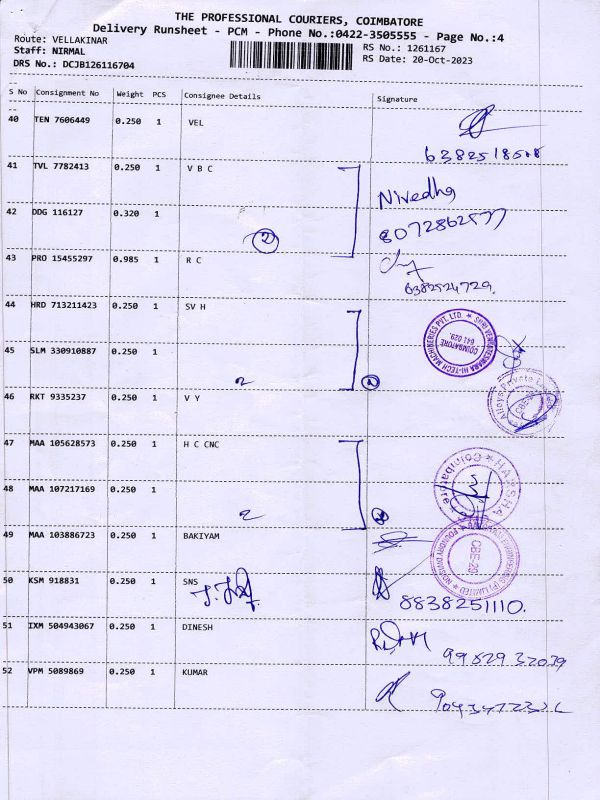 THE PROFESSIONAL COURIERS, COIMBATORE
Delivery Runsheet - PCM - Phone No.:0422-3505555 - Page No.:4
Route: VELLAKINAR
RS No.: 1261167
Staff: NIRMAL
RS Date: 20-Oct-2023
DRS No.: DCJB126116704
S No Consignment No Weight PCS Consignee Details Signature
40 TEN 7606449 0.250 1 VEL
41 TVL 7782413 0.250 1 V B C
Nivedha
42 DDG 116127 0.320 1
2
43 PRO 15455297 0.985 1 R C
6382524729.
44 HRD 713211423 0.250 1 SV H
SHRI VENKATESWARA HI-TECH MACHINERIES PVT. LTD.
COIMBATORE
641 029.
45 SLM 330910887 0.250 1
2
Alloys Private
46 RKT 9335237 1 0.250 V Y
47 MAA 105628573 0.250 1 H C CNC
HARSHA
Coimbatore
48 MAA 107217169 0.250 1
2
49 MAA 103886723 0.250 1 BAKIYAM
CBE-29
50 KSM 918831 0.250 1 SNS
8838251110.
51 IXM 504943067 0.250 1 DINESH
52 VPM 5089869 0.250 1 KUMAR